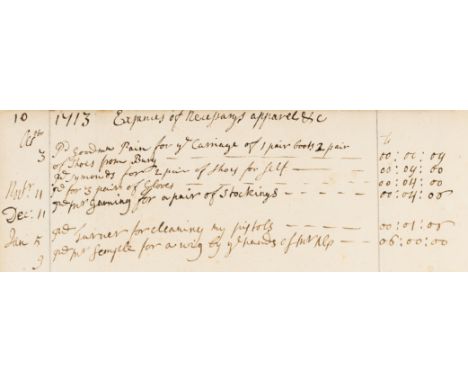 10 1713 Expences of Necessarys apparel &c
3 pd Goodman Pain for ye Carriage of 1 pair boots 2 pair
of Shoes from Bury 00:00:09
pd Symonds for 2 pair of Shoes for self 00:09:00
Novbr 11 pd for 3 pair of Gloves 00:04:00
Dec: 11 pd Mr for a pair of Stockings 00:04:06
Jan 5 pd Turner for cleaning my pistols 00:01:06
9 pd Mr Semple for a wig by ye hands of Mr 06:00:00